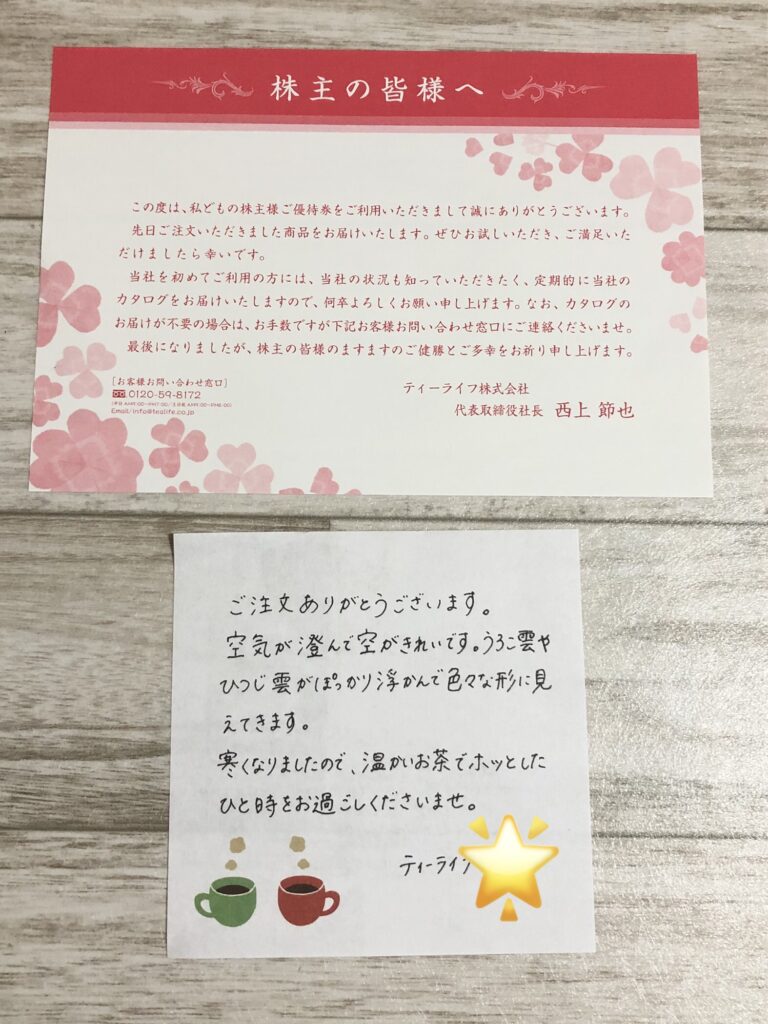 株主の皆様へ
この度は、私どもの株主様ご優待券をご利用いただきまして誠にありがとうございます。
先日ご注文いただきました商品をお届けいたします。ぜひお試しいただき、ご満足いた
だけましたら幸いです。
当社を初めてご利用の方には、当社の状況も知っていただきたく、定期的に当社の
カタログをお届けいたしますので、何卒よろしくお願い申し上げます。なお、カタログの
お届けが不要の場合は、お手数ですが下記お客様お問い合わせ窓口にご連絡くださいませ。
最後になりましたが、株主の皆様のますますのご健勝とご多幸をお祈り申し上げます。
[お客様お問い合わせ窓口]
0120-59-8172
Email/info@tealife.co.jp
ティーライフ株式会社
代表取締役社長 西上 節也
ご注文ありがとうございます。
空気が澄んで空がきれいです。うろこ雲や
ひつじ雲がぽっかり浮かんで色々な形に見
えてきます。
寒くなりましたので、温かいお茶でホッとした
ひと時をお過ごしくださいませ。
ティーライフ